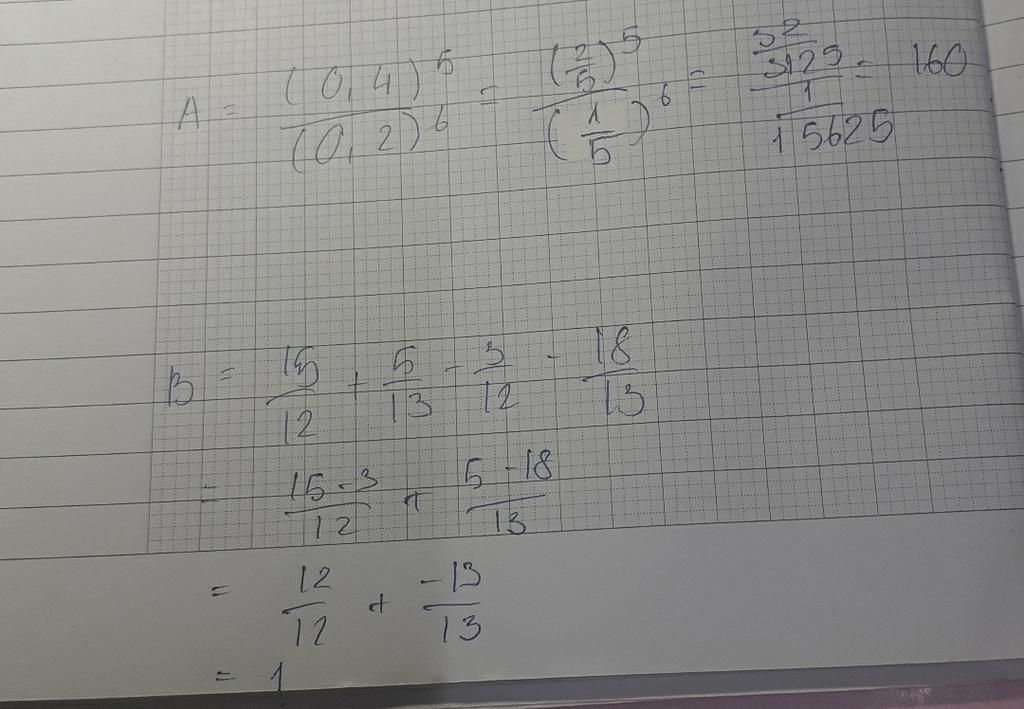 A = (0,4)^5 / (0,2)^6 = (2/5)^5 / (1/5)^6 = (32/3125) / (1/15625) = 160
B = 15/12 + 5/13 - 3/12 - 18/13
= (15-3)/12 + (5-18)/13
= 12/12 + -13/13
= 1